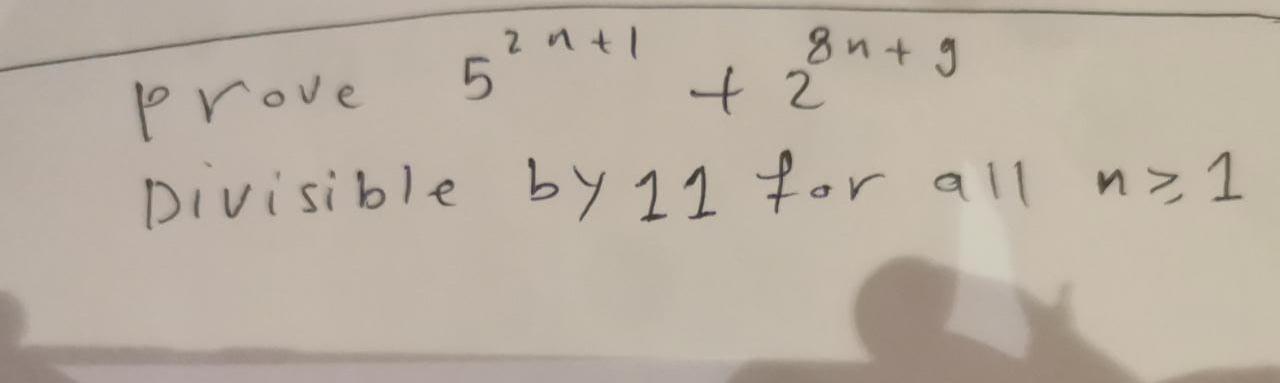 prove 5^{2n+1} + 2^{8n+9}
Divisible by 11 for all n ≥ 1